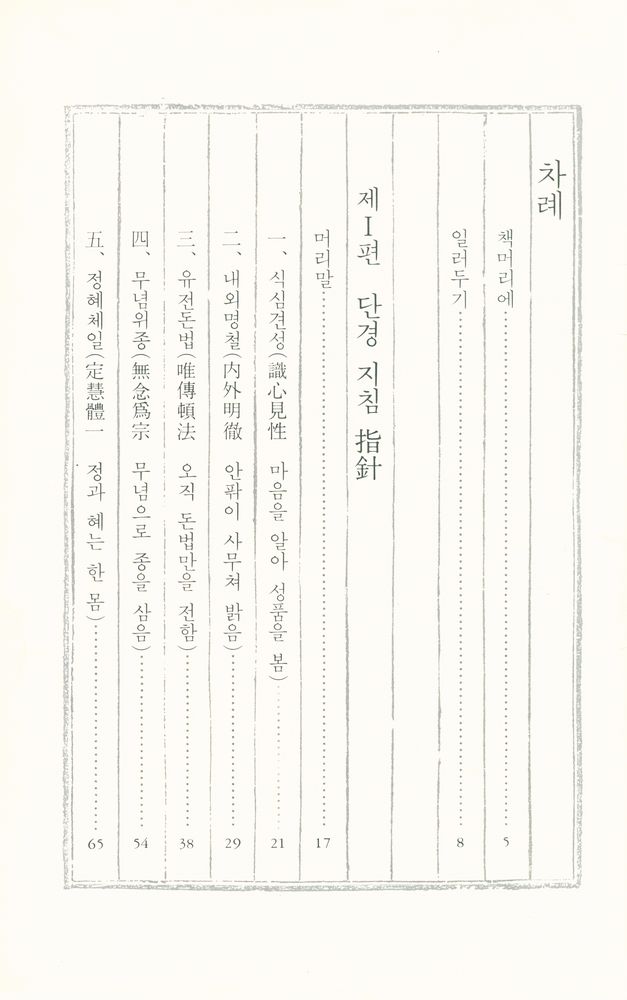 차례
책머리에 5
일러두기 8
제Ⅰ편 단경 지침 指針
머리말 17
一、식심견성(識心見性 마음을 알아 성품을 봄) 21
二、내외명철(内外明徹 안팎이 사무쳐 밝음) 29
三、유전돈법(唯傳頓法 오직 돈법만을 전함) 38
四、무념위종(無念爲宗 무념으로 종을 삼음) 54
五、정혜체일(定慧體一 정과 혜는 한 몸) 65